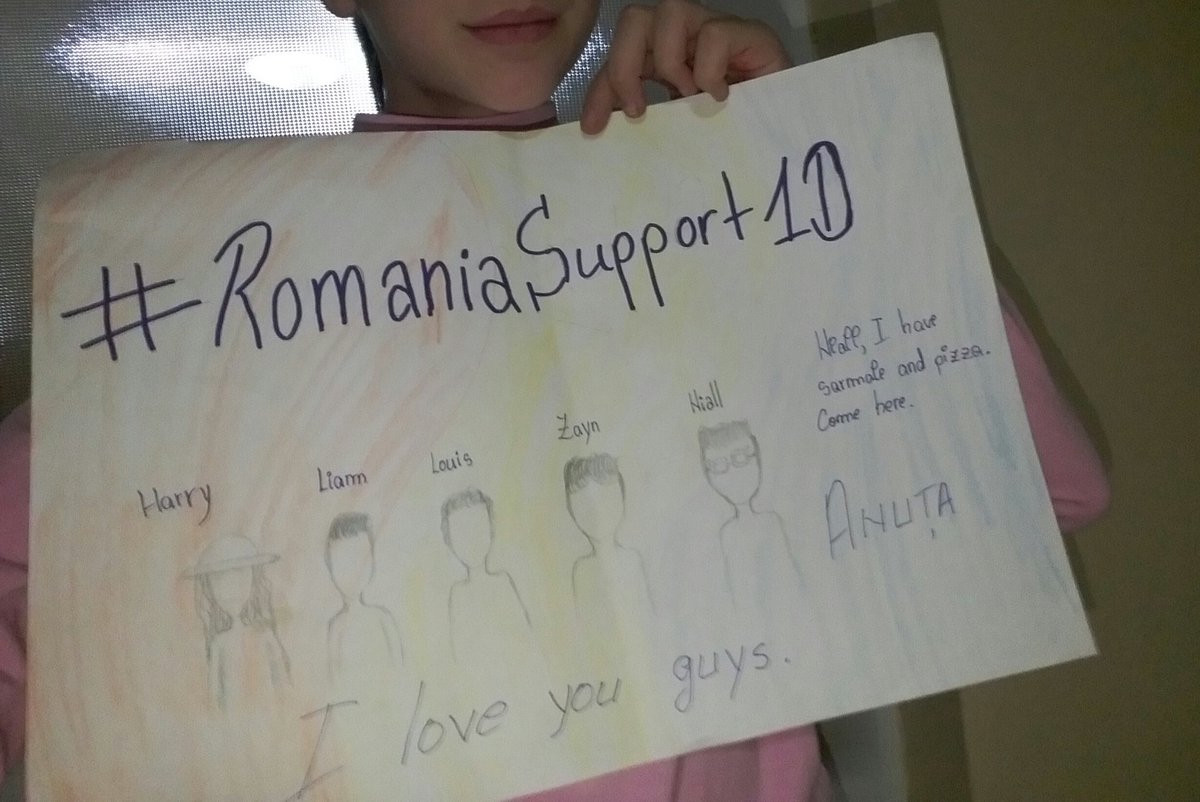 #RomaniaSupport1D
Neall, I have
sarmale and pizza.
Come here.
Niall
Zayn
Louis
Liam
Harry
ANUȚA
I love you guys.